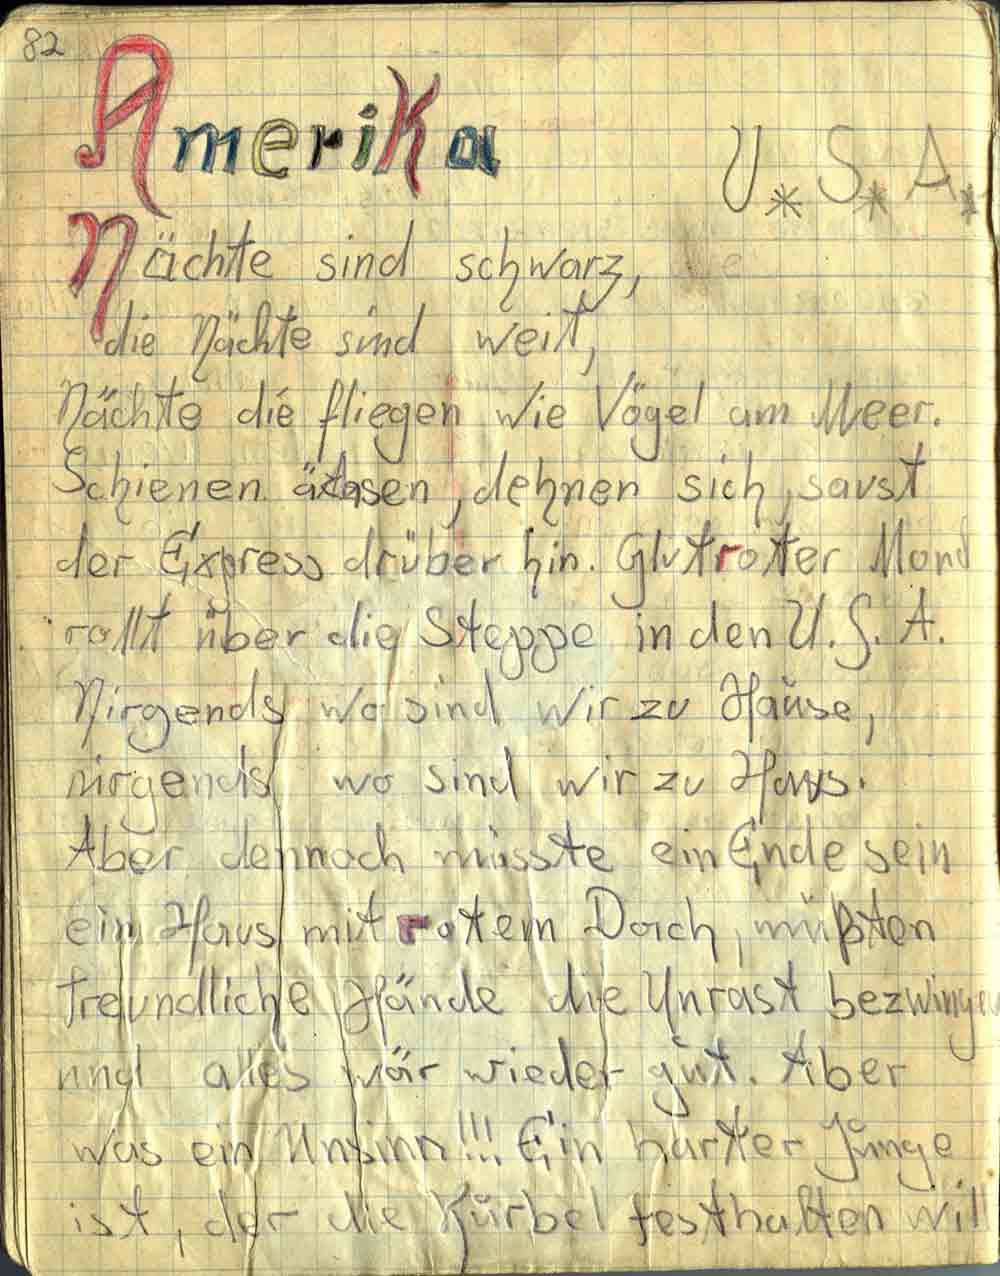 82
Amerika
U.*S.*A.*
Nächte sind schwarz,
die Nächte sind weit,
Nächte die fliegen wie Vögel am Meer.
Schienen ächzen, dehnen sich, saust
der Express drüber hin. Glutrotter Mond
rollt über die Steppe in den U.S.A.
Nirgends wo sind wir zu Hause,
nirgends wo sind wir zu Haus.
Aber dennoch müsste ein Ende sein
ein Haus mit rotem Dach, müßten
freundliche Hände die Unrast bezwingen
und alles wär wieder gut. Aber
was ein Unsinn!!! Ein harter Junge
ist, der die Kürbel festhalten will